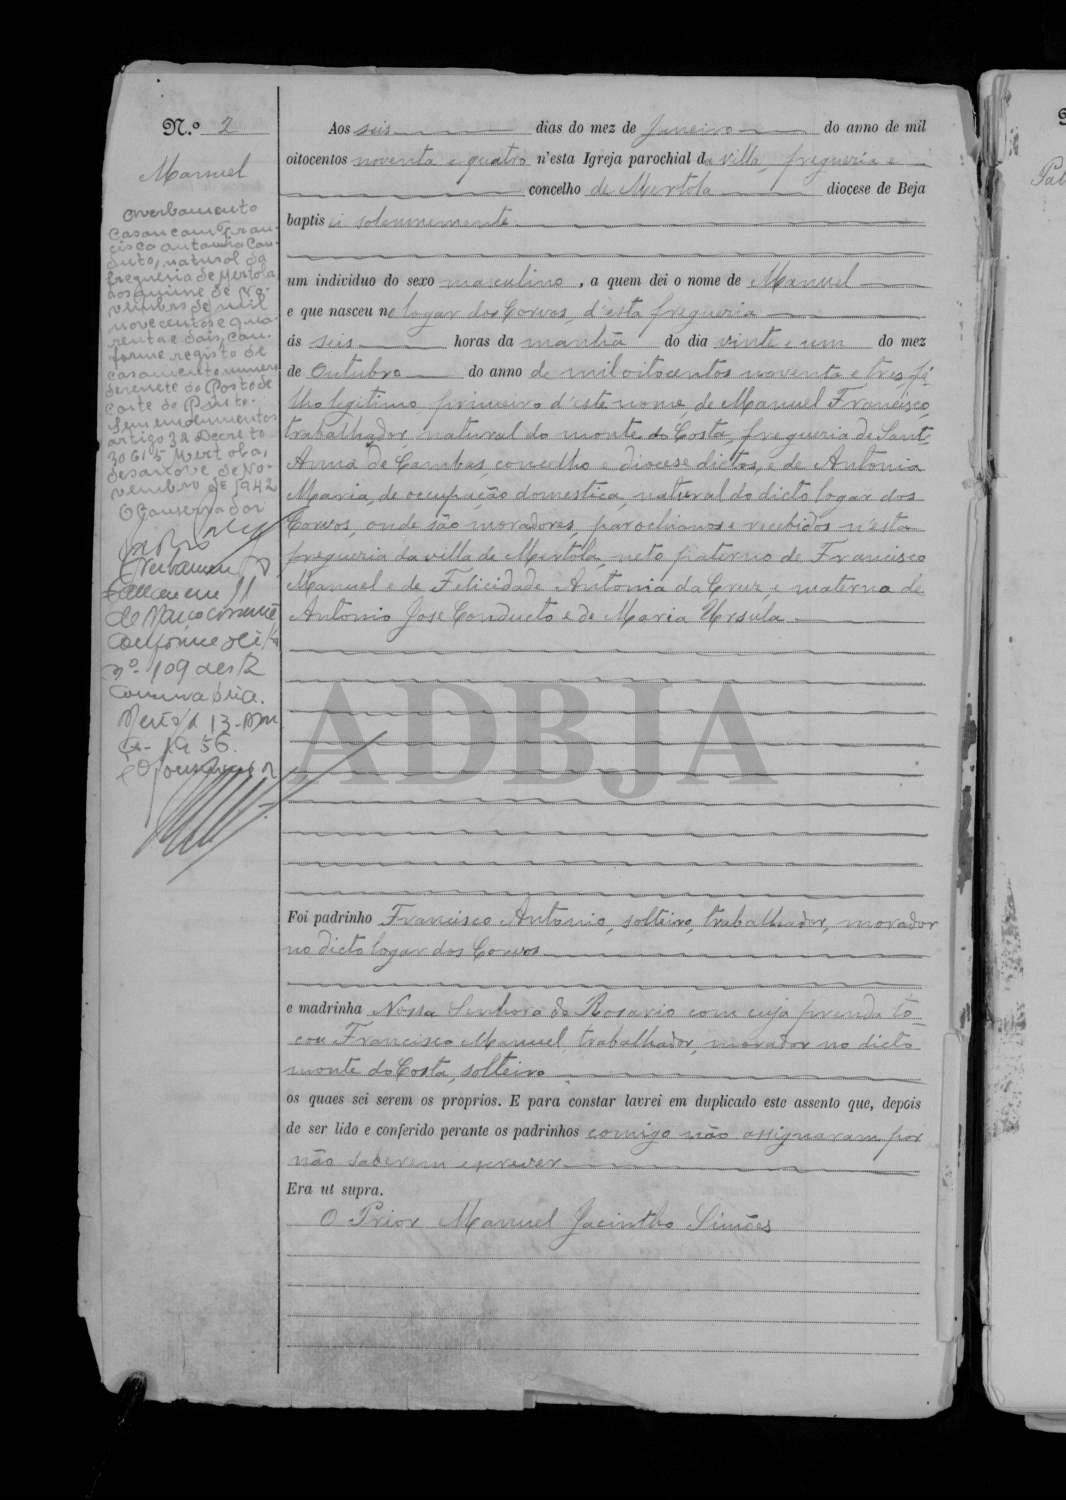 N.º 2
Manuel
Averbamento
Casou com Fran-
cisca Antonia Con-
duto, natural da
freguesia de Mertola
aos quinze de No-
vembro de mil
novecentos e qua-
renta e dois, con-
forme registo de
casamento numero
dezesete do Posto de
Corte do Pinto.
Sem emolumentos
artigo 32 Decreto
30615 Mertola,
desanove de No-
vembro de 1942
O Conservador
Averbamento
Faleceu em 11
de Março corrente
conforme
nº 109 desta
Conservatória.
Mertola 13-
1956.
O Conservador
Aos seis dias do mez de Janeiro do anno de mil
oitocentos noventa e quatro n'esta Igreja parochial da villa, freguezia e
concelho de Mertola diocese de Beja
baptisei solemnemente
um individuo do sexo masculino, a quem dei o nome de Manuel
e que nasceu no logar dos Corvos, d'esta freguezia
ás seis horas da manhã do dia vinte e um do mez
de Outubro do anno de mil oitocentos noventa e tres, fi-
lho legitimo, primeiro d'este nome, de Manuel Francisco,
trabalhador, natural do monte do Costa, freguezia de Sant'
Anna de Cambas, concelho e diocese dictos, e de Antonia
Maria, de occupação domestica, natural do dicto logar dos
Corvos, onde são moradores, parochianos e recebidos n'esta
freguezia da villa de Mertola, neto paterno de Francisco
Manuel e de Felicidade Antonia da Cruz, e materno de
Antonio José Conducto e de Maria Ursula
ADBJA
Foi padrinho Francisco Antonio, solteiro, trabalhador, morador
no dicto logar dos Corvos
e madrinha Nossa Senhora do Rosario com cuja prenda to-
cou Francisco Manuel trabalhador, morador no dicto
monte do Costa, solteiro
os quaes sei serem os proprios. E para constar lavrei em duplicado este assento que, depois
de ser lido e conferido perante os padrinhos comigo não assignaram por
não saberem escrever
Era ut supra.
O Prior Manuel Jacintho Simões